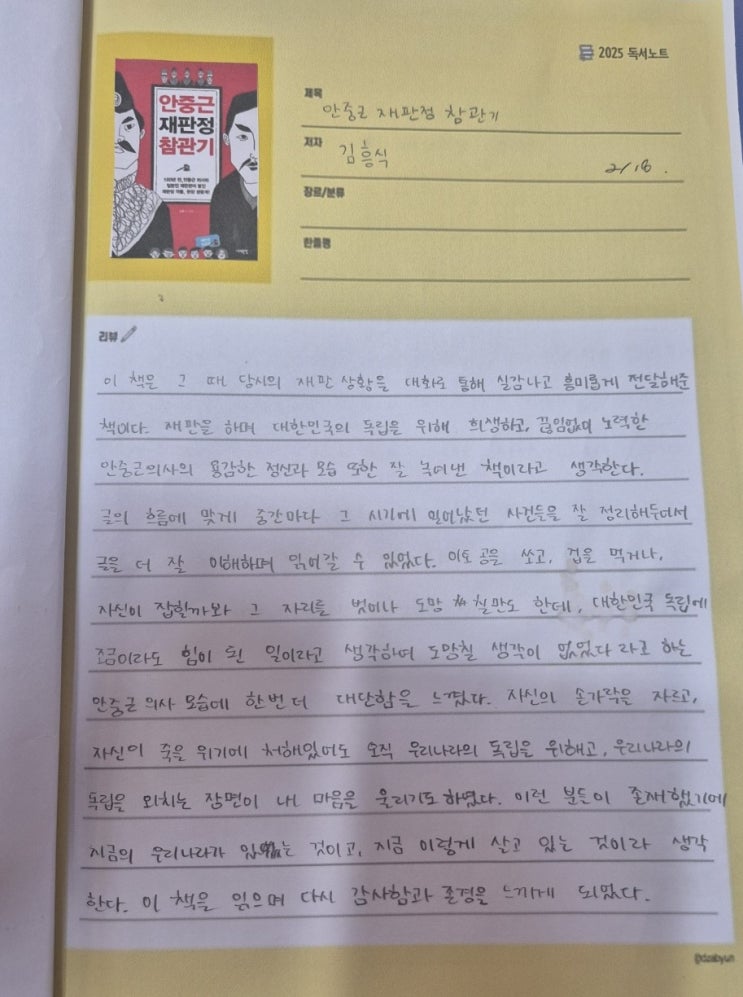 2025 독서노트
안중근
재판정
참관기
제목
안중근 재판정 참관기
저자
김흥식
2/18.
장르/분류
한줄평
리뷰
이 책은 그 때 당시의 재판 상황을 대화로 통해 실감나고 흥미롭게 전달해준
책이다. 재판을 하며 대한민국의 독립을 위해 희생하고, 끊임없이 노력한
안중근의사의 용감한 정신과 모습 또한 잘 녹여낸 책이라고 생각한다.
글의 흐름에 맞게 중간마다 그 시기에 일어났던 사건들을 잘 정리해두어서
글을 더 잘 이해하며 읽어갈 수 있었다. 이토 공을 쏘고, 겁을 먹거나,
자신이 잡힐까봐 그 자리를 벗어나 도망 칠만도 한데, 대한민국 독립에
조금이라도 힘이 된 일이라고 생각하여 도망칠 생각이 없었다 라고 하는
안중근 의사 모습에 한번 더 대단함을 느꼈다. 자신의 손가락을 자르고,
자신이 죽을 위기에 처해있어도 오직 우리나라의 독립을 위해고, 우리나라의
독립을 외치는 장면이 내 마음을 울리기도 하였다. 이런 분들이 존재했기에
지금의 우리나라가 있는 것이고, 지금 이렇게 살고 있는 것이라 생각
한다. 이 책을 읽으며 다시 감사함과 존경을 느끼게 되었다.
@dzabyun